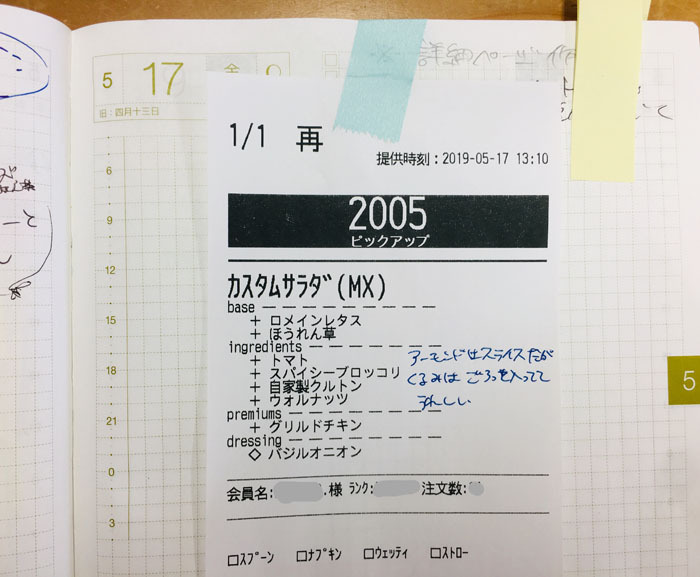 5 17 金
旧:四月十三日
6
9
12
15
18
21
0
3
詳細ページ
1/1 再
提供時刻:2019-05-17 13:10
2005
ピックアップ
カスタムサラダ(MX)
base
+ ロメインレタス
+ ほうれん草
ingredients
+ トマト
+ スパイシーブロッコリ
+ 自家製クルトン
+ ウォルナッツ
premiums
+ グリルドチキン
dressing
◇ バジルオニオン
アーモンドはスライスだが
くるみはごろっと入ってて
うれしい
会員名: 様 ランク: 注文数:
□スプーン □ナプキン □ウェッティ □ストロー
5